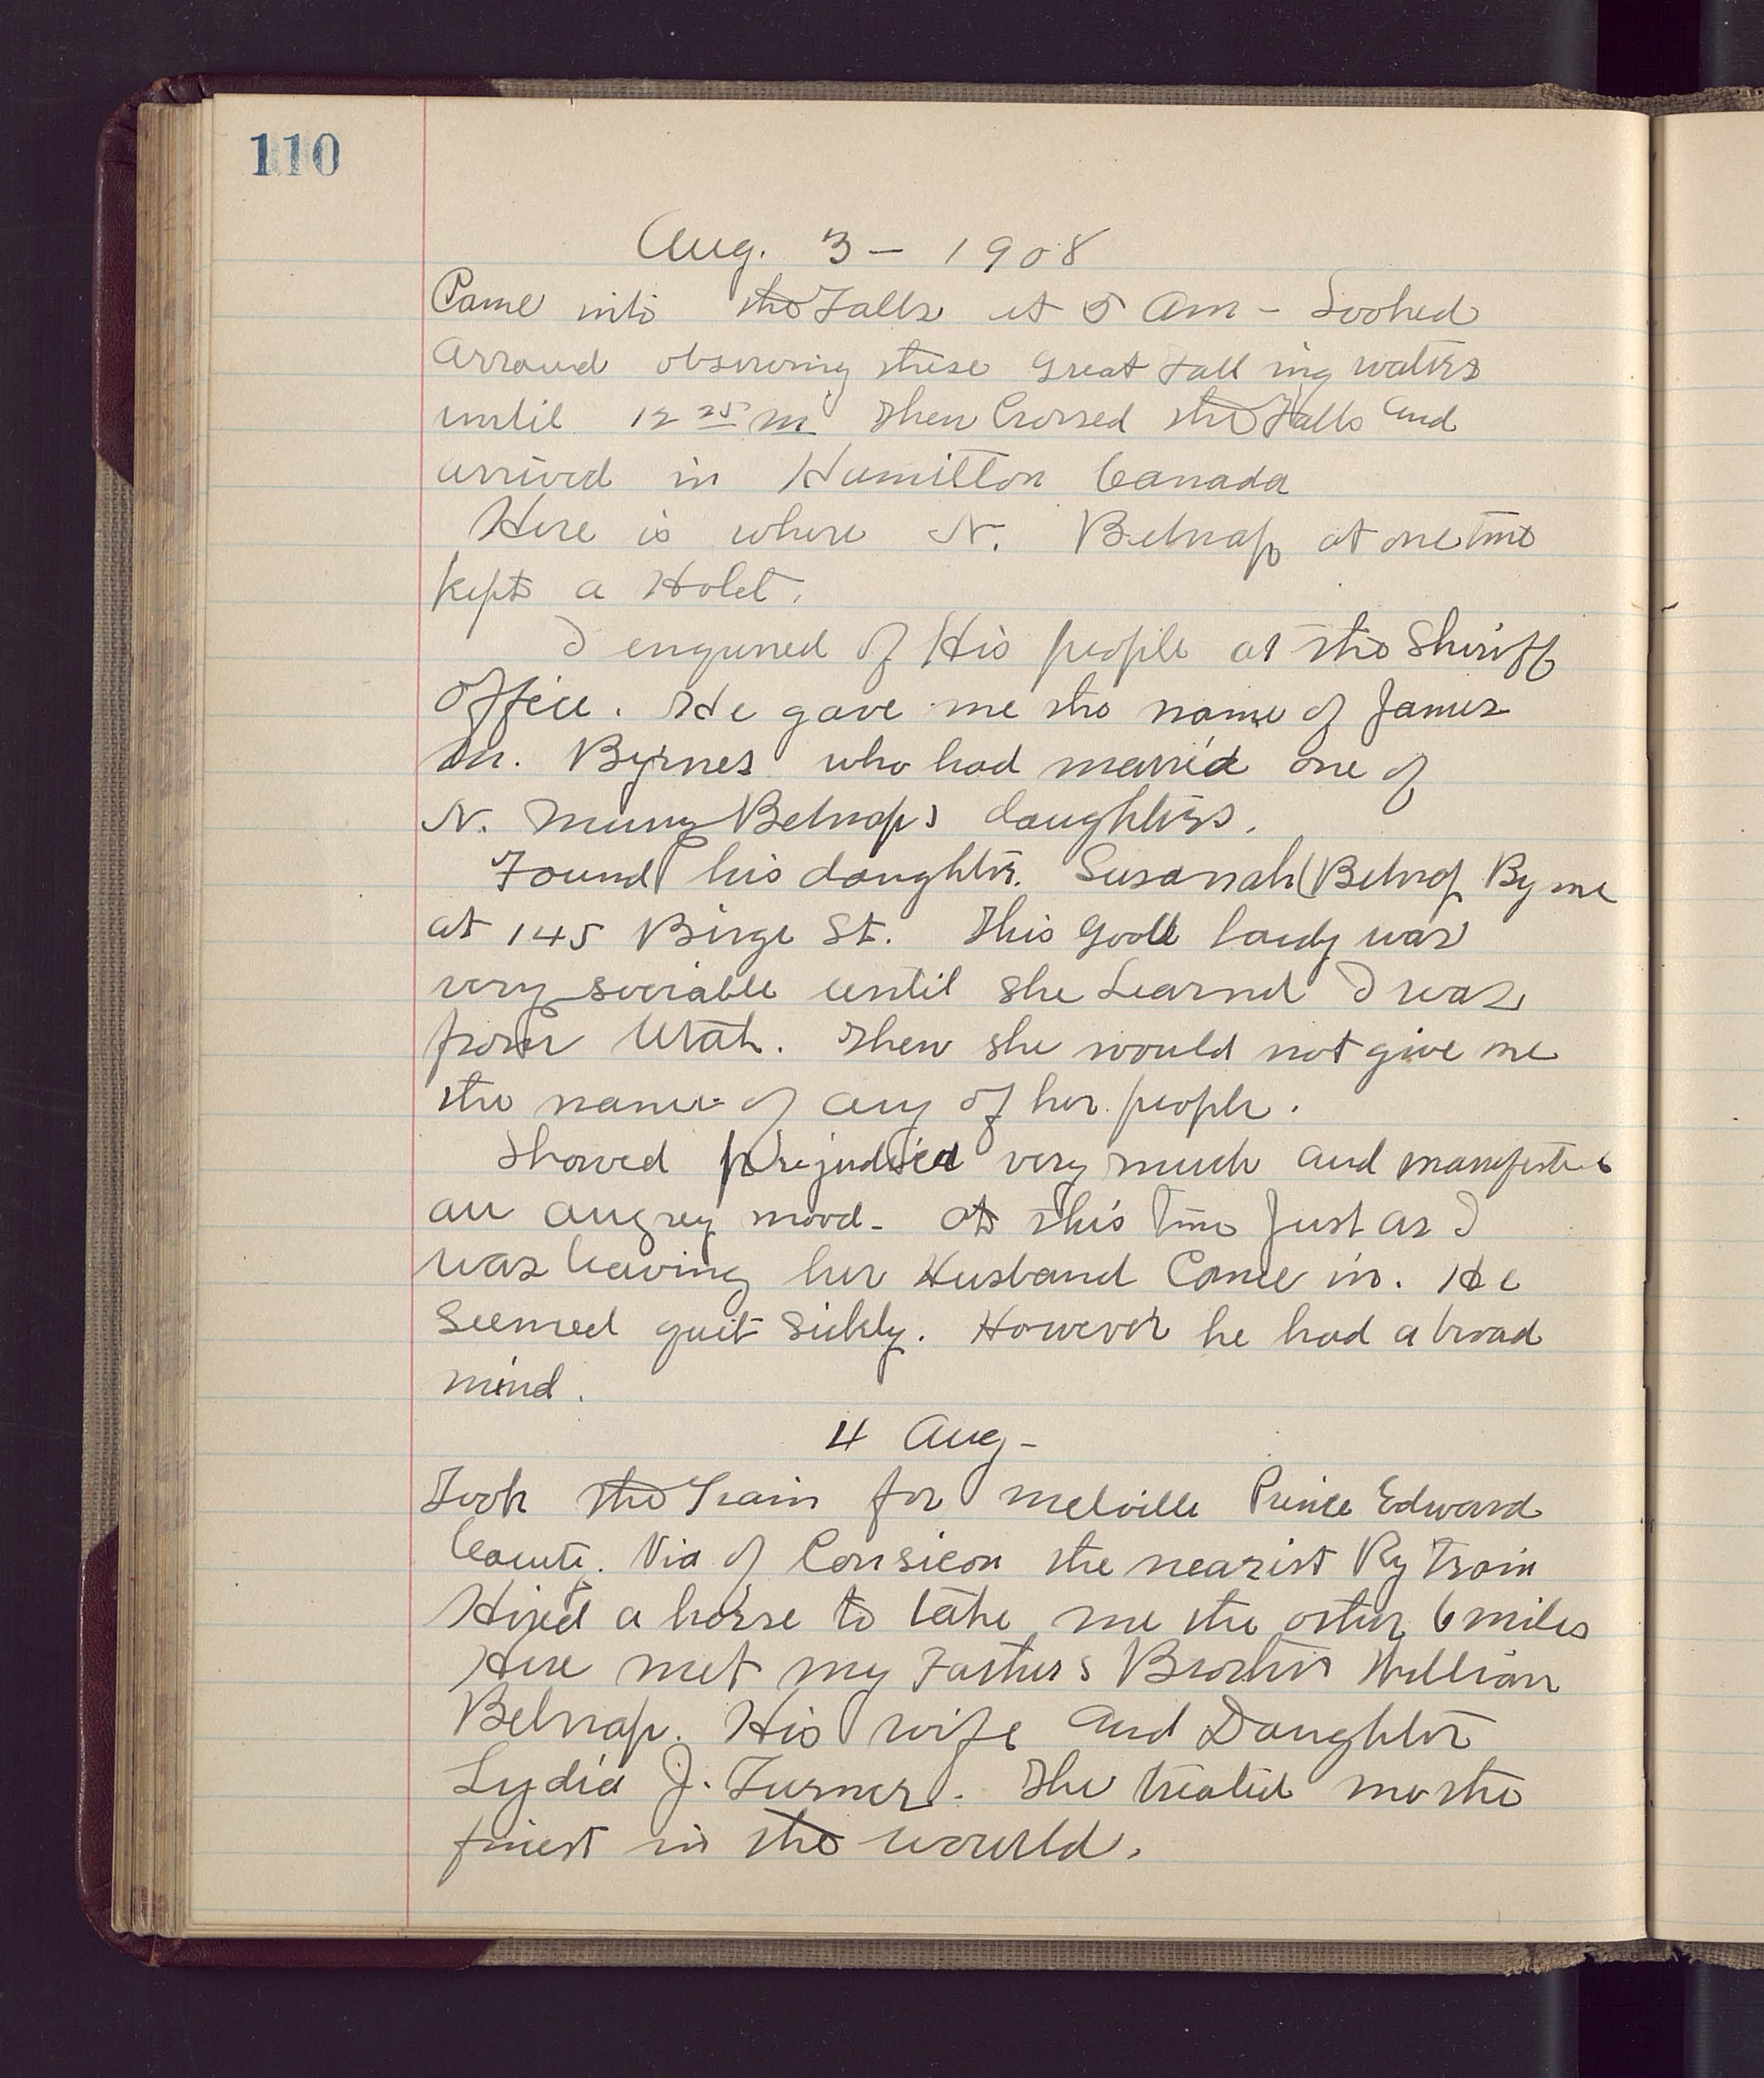 110
Aug. 3 – 1908
Came into the Falls at 5 am – Looked
arround observing these great Falling waters
until 12 25 m Then Crossed the Falls and
arrived in Hamilton Canada
Here is where N. Belnap at one time
kept a Hotel.
I enquired of His people at the Sheriff
Office. He gave me the name of James
M. Byrnes who had married one of
N. Munroe Belnaps daughters.
Found his daughter. Susannah (Belnap Byrne
at 145 Birge St. This good lady was
very sociable until she Learned I was
from Utah. Then she would not give me
the name of any of her people.
Showed prejudiced very much and manifested
an angrey mood – At this Time Just as I
was leaving her Husband Came in. He
Seemed quit Sickly. However he had a broad
mind.
4 Aug –
Took the Train for Melville Prince Edward
County. Via of Consicon the nearist Ry Train
Hired a horse to take me the other 6 miles
Here met my Fathers Brother William
Belnap. His wife and Daughter
Lydia J. Turner. She treated me the
finest in the world.